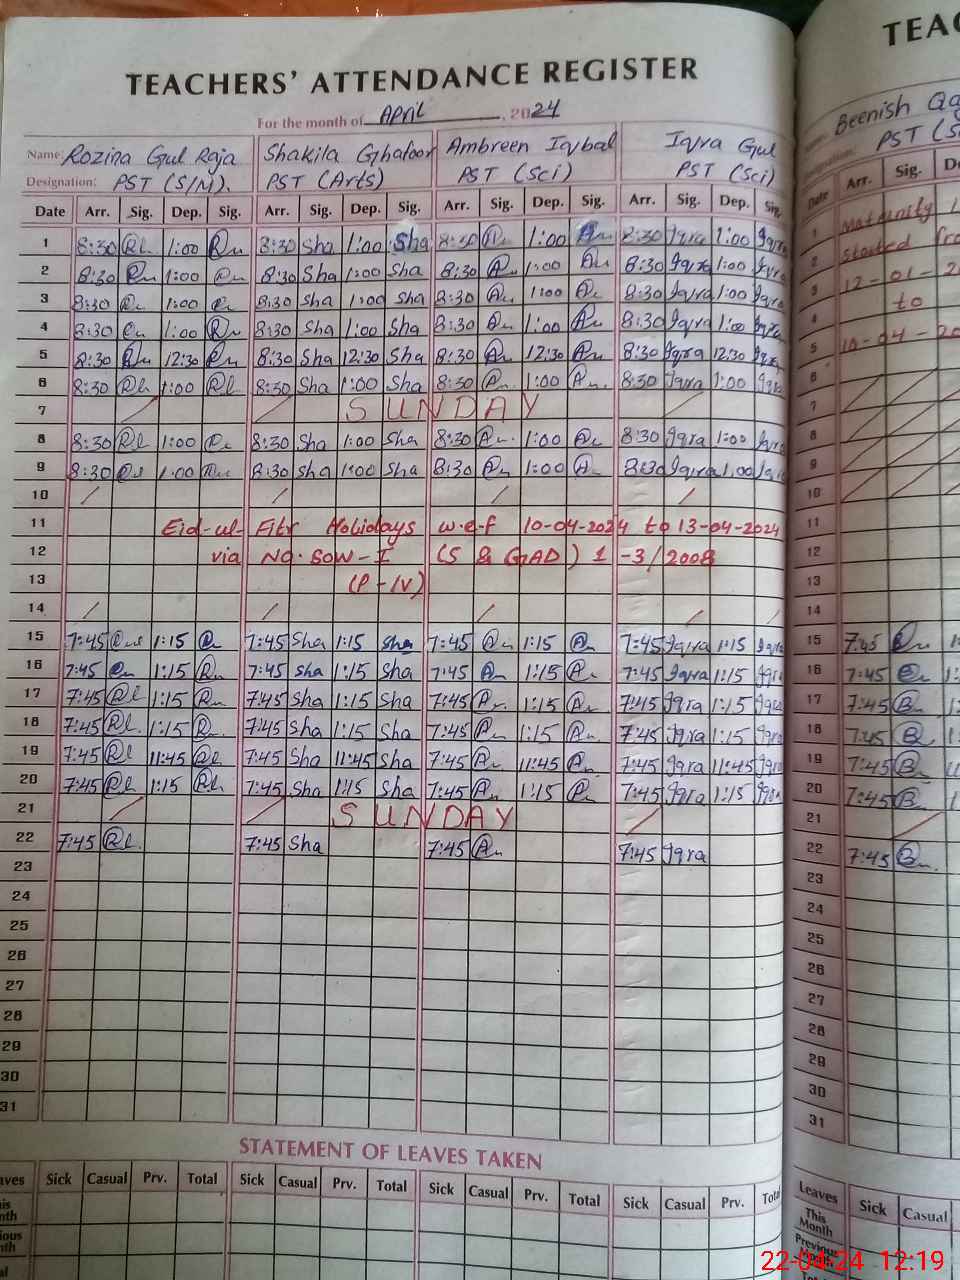 TEACHERS' ATTENDANCE REGISTER
For the month of April, 2024
Name: Rozina Gul Raja Shakila Ghafoor Ambreen Iqbal Iqra Gul
Designation: PST (S/M). PST (Arts) PST (Sci) PST (Sci)
Date Arr. Sig. Dep. Sig. Arr. Sig. Dep. Sig. Arr. Sig. Dep. Sig. Arr. Sig. Dep. Sig.
1 8:30 1:00 8:30 Sha 1:00 Sha 8:30 1:00 8:30 Iqra 1:00 Iqra
2 8:30 1:00 8:30 Sha 1:00 Sha 8:30 1:00 8:30 Iqra 1:00 Iqra
3 8:30 1:00 8:30 Sha 1:00 Sha 8:30 1:00 8:30 Iqra 1:00 Iqra
4 8:30 1:00 8:30 Sha 1:00 Sha 8:30 1:00 8:30 Iqra 1:00 Iqra
5 8:30 12:30 8:30 Sha 12:30 Sha 8:30 12:30 8:30 Iqra 12:30 Iqra
6 8:30 1:00 8:30 Sha 1:00 Sha 8:30 1:00 8:30 Iqra 1:00 Iqra
7 SUNDAY
8 8:30 1:00 8:30 Sha 1:00 Sha 8:30 1:00 8:30 Iqra 1:00 Iqra
9 8:30 1:00 8:30 Sha 1:00 Sha 8:30 1:00 8:30 Iqra 1:00 Iqra
10
11 Eid-ul-Fitr Holidays w.e.f 10-04-2024 to 13-04-2024
12 via No. SOW-I (S & GAD) 1-3/2008
13 (P-IV)
14
15 7:45 1:15 7:45 Sha 1:15 Sha 7:45 1:15 7:45 Iqra 1:15 Iqra
16 7:45 1:15 7:45 Sha 1:15 Sha 7:45 1:15 7:45 Iqra 1:15 Iqra
17 7:45 1:15 7:45 Sha 1:15 Sha 7:45 1:15 7:45 Iqra 1:15 Iqra
18 7:45 1:15 7:45 Sha 1:15 Sha 7:45 1:15 7:45 Iqra 1:15 Iqra
19 7:45 11:45 7:45 Sha 11:45 Sha 7:45 11:45 7:45 Iqra 11:45 Iqra
20 7:45 1:15 7:45 Sha 1:15 Sha 7:45 1:15 7:45 Iqra 1:15 Iqra
21 SUNDAY
22 7:45 7:45 Sha 7:45 7:45 Iqra
23
24
25
26
27
28
29
30
31
STATEMENT OF LEAVES TAKEN
Sick Casual Prv. Total Sick Casual Prv. Total Sick Casual Prv. Total Sick Casual Prv.
Beenish
PST
Date Arr. Sig.
1 Maternity
2 started
3 12-01-
4 to
5 10-04-
6
7
8
9
10
11
12
13
14
15 7:45
16 7:45
17 7:45
18 7:45
19 7:45
20 7:45
21
22 7:45
23
24
25
26
27
28
29
30
31
Leaves Sick Casual
This Month
Previous Month
22-04-24 12:19